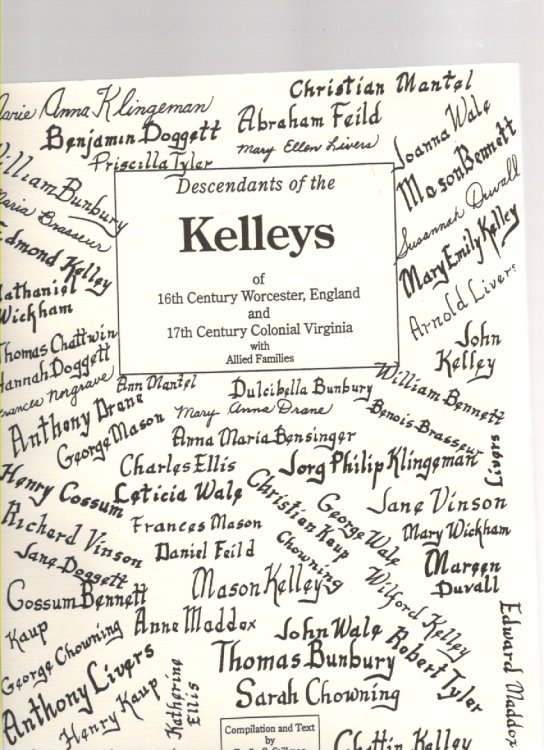 Christian Mantel
Marie Anna Klingeman
Abraham Feild
Benjamin Doggett
Mary Ellen Livers
Joanna Wale
Priscilla Tyler
Mason Bennett
William Bunbury
Susannah Duvall
Maria Brasseur
Mary Emily Kelley
Edmond Kelley
Arnold Livers
Nathaniel
Wickham
Descendants of the
Kelleys
of
16th Century Worcester, England
and
17th Century Colonial Virginia
with
Allied Families
John
Kelley
Thomas Chattwin
Hannah Doggett
Frances Norgrave
Ann Mantel
Dulcibella Bunbury
William Bennett
Anthony Drane
Mary Anna Drane
Benois Brasseur
George Mason
Anna Maria Bensinger
Livers
Charles Ellis
Jorg Philip Klingeman
Henry Cossum
Leticia Wale
Christian Kaup
George Wale
Jane Vinson
Richard Vinson
Frances Mason
Mary Wickham
Jane Doggett
Daniel Feild
Chowning
Mareen
Duvall
Mason Kelley
Wilford Kelley
Cossum Bennett
Kaup
Anne Maddox
John Wale
Robert Tyler
Edward Maddox
George Chowning
Thomas Bunbury
Anthony Livers
Katherine
Ellis
Sarah Chowning
Henry Kaup
Compilation and Text
by
Chattin Kelley